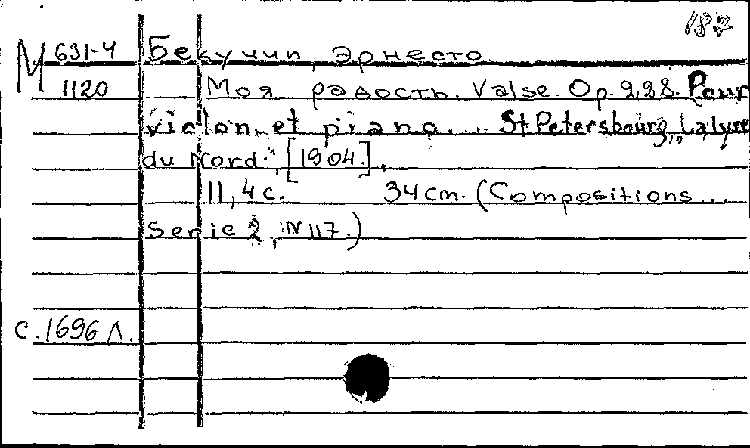 182
М 631-4 Бекучип, Эрнесто
1120 Моя радость. Valse. Op. 228. Pour
violon et piano... St Petersbourg, La lyre
du Nord, [1904].
11, 4 с. 34 cm. (Compositions...
Serie 2, N 117.)
С. 1696 Л.